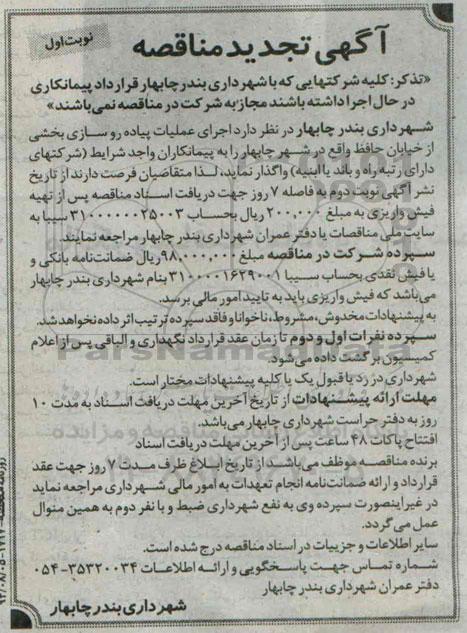 آگهی تجدید مناقصه
نوبت اول
«تذکر: کلیه شرکتهایی که با شهرداری بندر چابهار قرارداد پیمانکاری
در حال اجرا داشته باشند مجاز به شرکت در مناقصه نمی باشند»
شهرداری بندر چابهار در نظر دارد اجرای عملیات پیاده رو سازی بخشی
از خیابان حافظ واقع در شهر چابهار را به پیمانکاران واجد شرایط (شرکتهای
دارای رتبه راه و باند یا ابنیه) واگذار نماید، لذا متقاضیان فرصت دارند از تاریخ
نشر آگهی نوبت دوم به فاصله ۷ روز جهت دریافت اسناد مناقصه پس از تهیه
فیش واریزی به مبلغ ۲۰۰,۰۰۰ ریال بحساب ۳۱۰۰۰۰۰۰۲۵۰۰۳ سیبا به
سایت ملی مناقصات یا دفتر عمران شهرداری بندر چابهار مراجعه نمایند.
سپرده شرکت در مناقصه مبلغ ۹۸,۰۰۰,۰۰۰ ریال ضمانت نامه بانکی و
یا فیش نقدی بحساب سیبا ۳۱۰۰۰۰۱۶۲۹۰۰۱ بنام شهرداری بندر چابهار
می باشد که فیش واریزی باید به تایید امور مالی برسد.
به پیشنهادات مخدوش، مشروط، ناخوانا و فاقد سپرده ترتیب اثر داده نخواهد شد.
سپرده نفرات اول و دوم تا زمان عقد قرارداد نگهداری و الباقی پس از اعلام
کمیسیون برگشت داده می شود.
شهرداری در رد یا قبول یک یا کلیه پیشنهادات مختار است.
مهلت ارائه پیشنهادات از تاریخ آخرین مهلت دریافت اسناد به مدت ۱۰
روز به دفتر حراست شهرداری چابهار می باشد.
افتتاح پاکات ۴۸ ساعت پس از آخرین مهلت دریافت اسناد
برنده مناقصه موظف می باشد از تاریخ ابلاغ ظرف مدت ۷ روز جهت عقد
قرارداد و ارائه ضمانت نامه انجام تعهدات به امور مالی شهرداری مراجعه نماید
در غیر اینصورت سپرده وی به نفع شهرداری ضبط و با نفر دوم به همین منوال
عمل می گردد.
سایر اطلاعات و جزییات در اسناد مناقصه درج شده است.
شماره تماس جهت پاسخگویی و ارائه اطلاعات ۳۵۳۲۰۰۳۴-۰۵۴
دفتر عمران شهرداری بندر چابهار
شهرداری بندر چابهار
ParsNamad